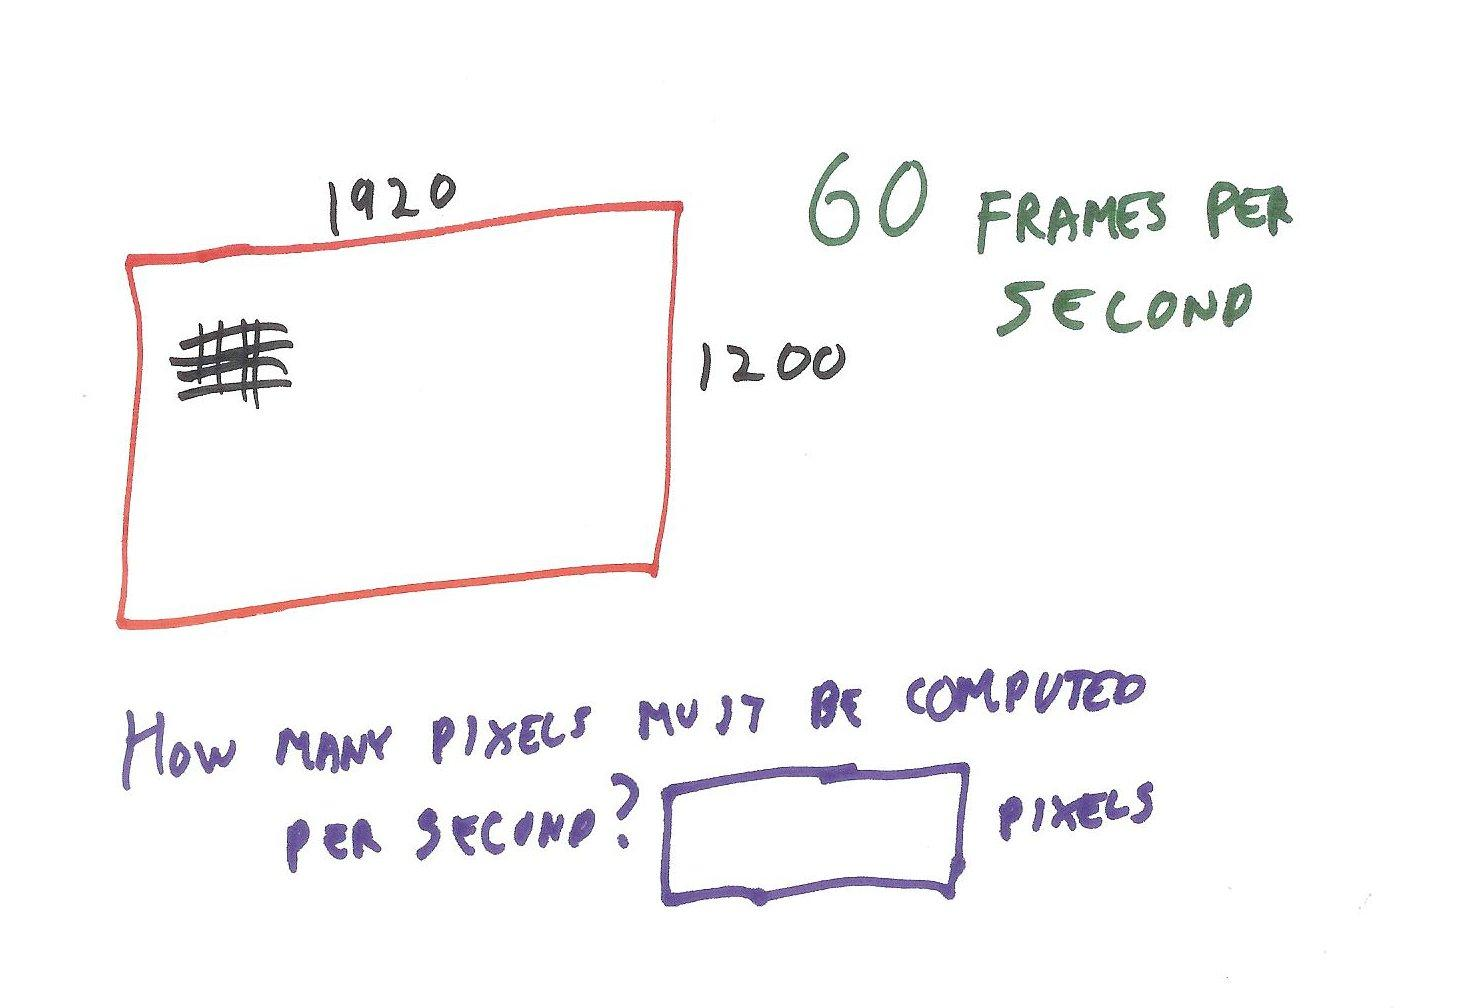 1920
60 FRAMES PER
SECOND
1200
HOW MANY PIXELS MUST BE COMPUTED
PER SECOND? PIXELS